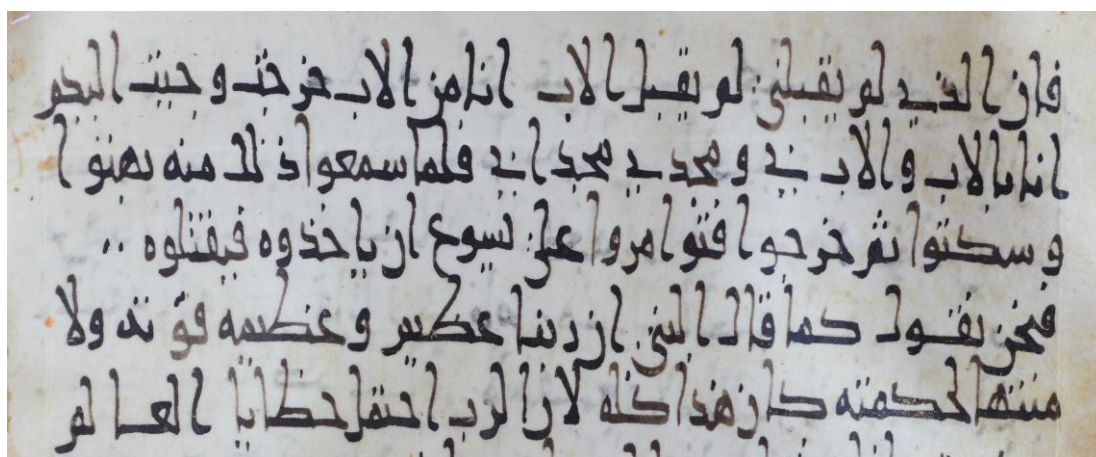 فان الذي لم يقبلني لم يقبل الاب انا من الاب خرجت وجيت اليكم
انا بالاب والاب بي ومجدي مجد ابي فلما سمعوا ذلك منه بهتوا
وسكتوا ثم خرجوا فتوامروا على يسوع ان ياخذوه فيقتلوه
فنحن نقول كما قال النبي ان ربنا عظيم وعظيمه قوته ولا
منتها لحكمته كان هذا كله لان الرب احتمل خطايا العالم